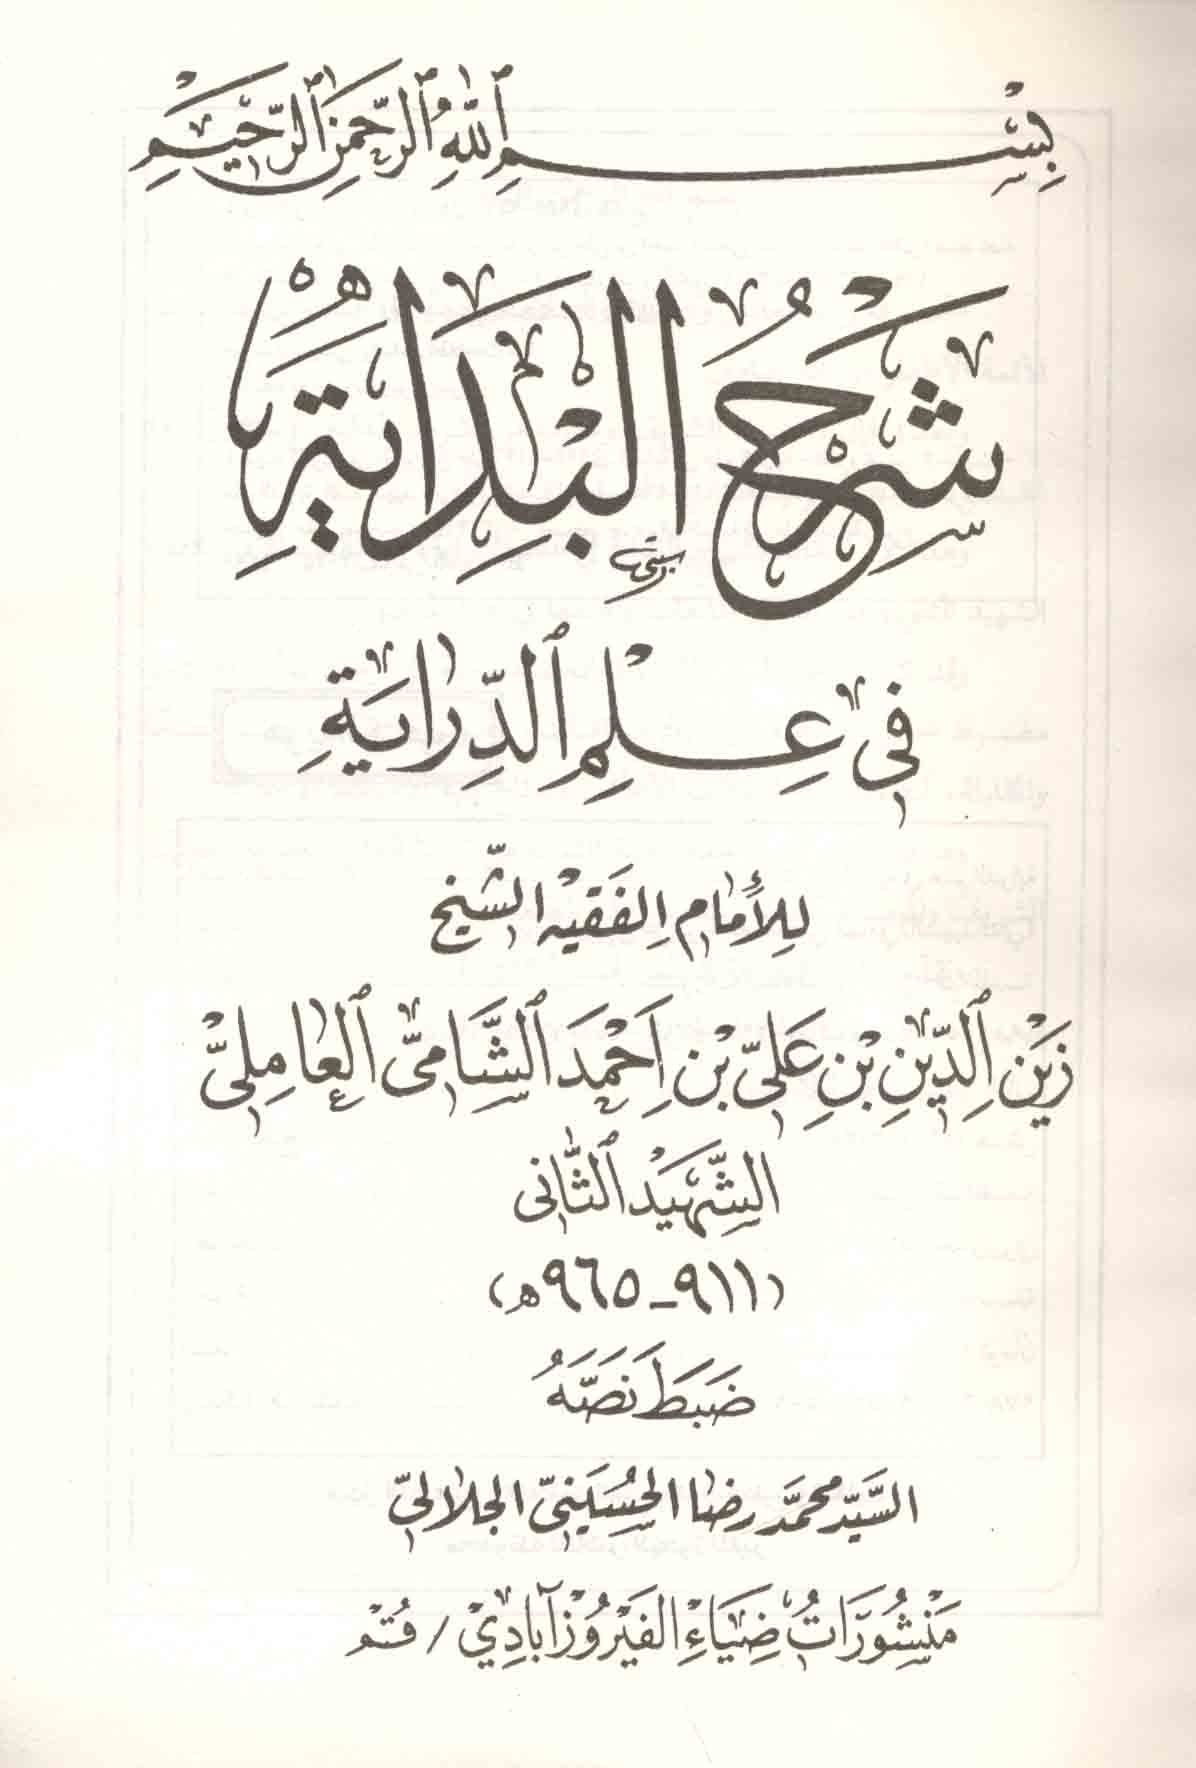 بِسْمِ ٱللَّٰهِ ٱلرَّحْمَٰنِ ٱلرَّحِيمِ
شَرْحُ الْبِدَايَةِ
فِي عِلْمِ ٱلدِّرَايَةِ
لِلأِمَامِ الفَقيهْ الشّيخ
زَيْن ٱلدِّينِ بْنِ عَلىّ بْن اَحْمَدَ ٱلشَّامىّ ٱلْعَامِلىّ
الشّهيد ٱلثّانى
(٩١١-٩٦٥ه)
ضَبَطَ نَصَّهُ
السَّيّد محمَّد رضا الحُسَينىّ الجلالىّ
مَنْشُورَاتُ ضِيَاءِ الفَيْرُوزْآبادِيْ / قُمْ